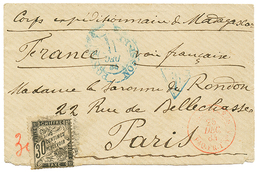 Corps expéditionnaire de Madagascar
France voie française
Madame la Baronne de Rondon
22 Rue de Bellechasse
Paris
CHIFFRE
30
TAXE